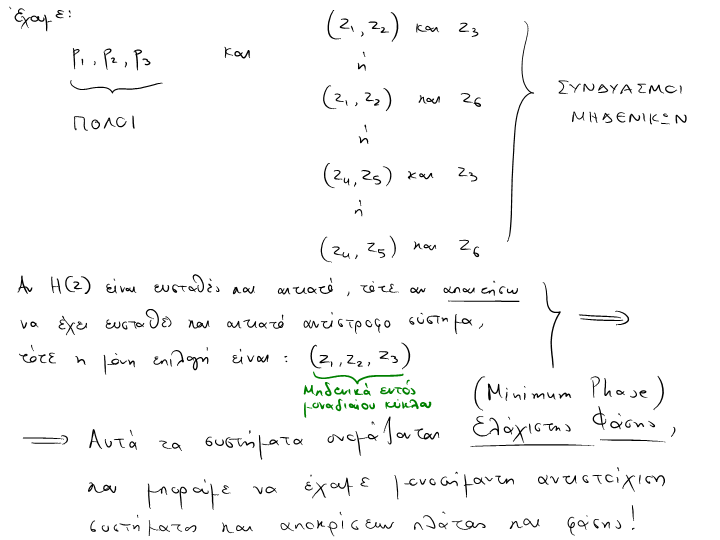 Έχουμε:
p₁, p₂, p₃ και
ΠΟΛΟΙ
(z₁, z₂) και z₃
ή
(z₁, z₂) και z₆
ή
(z₄, z₅) και z₃
ή
(z₄, z₅) και z₆
ΣΥΝΔΥΑΣΜΟΙ
ΜΗΔΕΝΙΚΩΝ
Αν H(z) είναι ευσταθές και αιτιατό, τότε αν απαιτήσω
να έχει ευσταθές και αιτιατό αντίστροφο σύστημα,
τότε η μόνη επιλογή είναι: (z₁, z₂, z₃)
Μηδενικά εντός
μοναδιαίου κύκλου
⟹
(Minimum Phase)
⟹ Αυτά τα συστήματα ονομάζονται Ελάχιστης Φάσης,
και μπορούμε να έχουμε μονοσήμαντη αντιστοίχιση
συστήματος και αποκρίσεων πλάτους και φάσης!